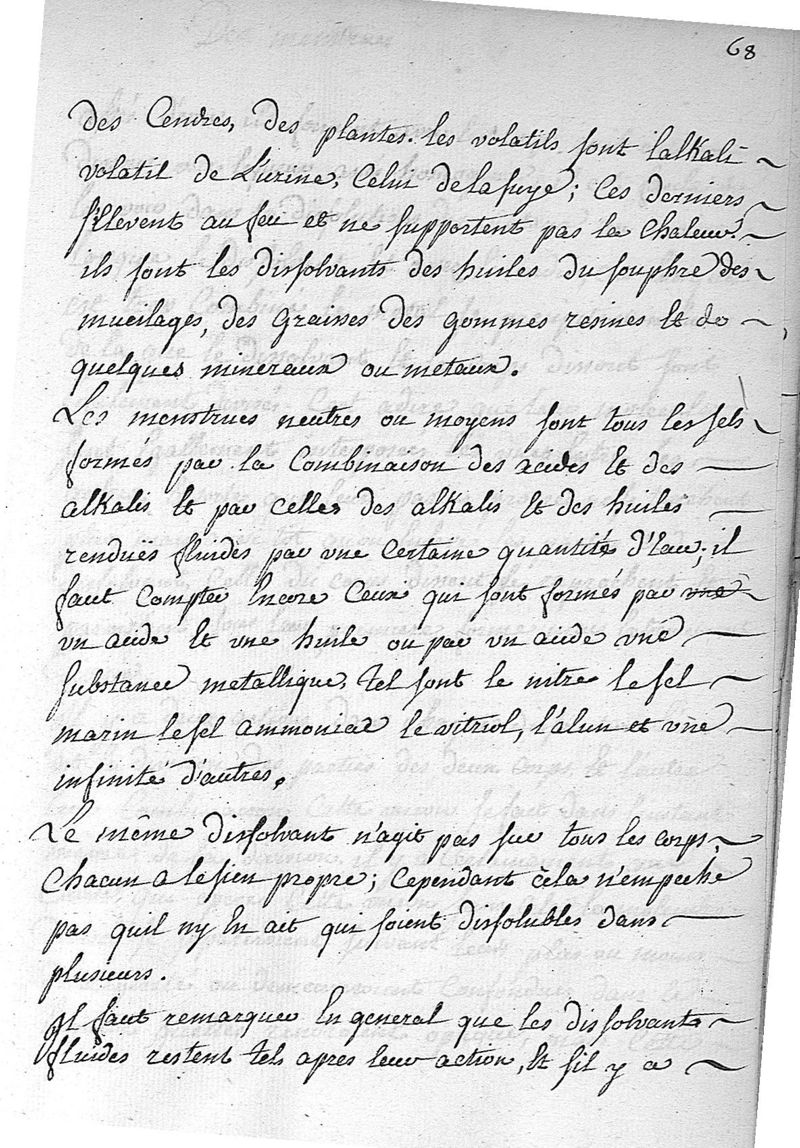 68
des Cendres, des plantes. les volatils sont lalkali
volatil de L'urine, Celui de la suye; Ces derniers
s'Elevent au feu et ne supportent pas la Chaleur.
ils sont les dissolvants des huiles du souphre des
mucilages, des Graisses des gommes resines Et de
quelques mineraux ou metaux.
Les menstrues neutres ou moyens sont tous les sels
formés par la Combinaison des acides Et des
alkalis Et par celles des alkalis Et des huiles
renduës fluides par vne Certaine quantité d'Eau; il
faut Compter Encore Ceux qui sont formés par vne
vn acide Et vne huile ou par vn acide vne
substance metallique, tel sont le nitre le sel
marin le sel ammoniac le vitriol, l'alun et vne
infinité d'autres.
Le même dissolvant n'agit pas sur tous les corps,
Chacun a le sien propre; Cependant cela n'empeche
pas quil ny En ait qui soient dissolubles dans
plusieurs.
Il faut remarquer En general que les dissolvants
fluides restent tels apres leur action, Et sil y a